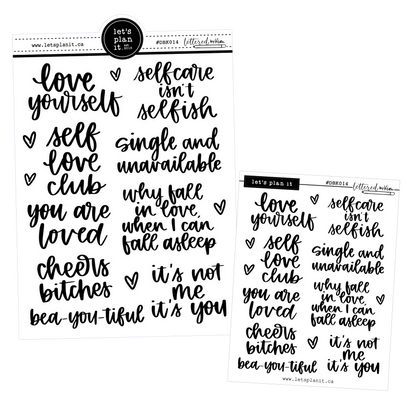 let's
plan
it
www.letsplanit.ca
#DBK014
lettered
love
yourself
selfcare
isn't
selfish
self
love
club
single and
unavailable
you are
loved
why fall
in love,
when I can
fall asleep
cheers
bitches
it's not
me
it's you
bea-you-tiful
let's plan it
#DBK014
lettered
love
yourself
selfcare
isn't
selfish
self
love
club
single and
unavailable
you are
loved
why fall
in love,
when I can
fall asleep
cheers
bitches
it's not
me
it's you
bea-you-tiful
www.letsplanit.ca